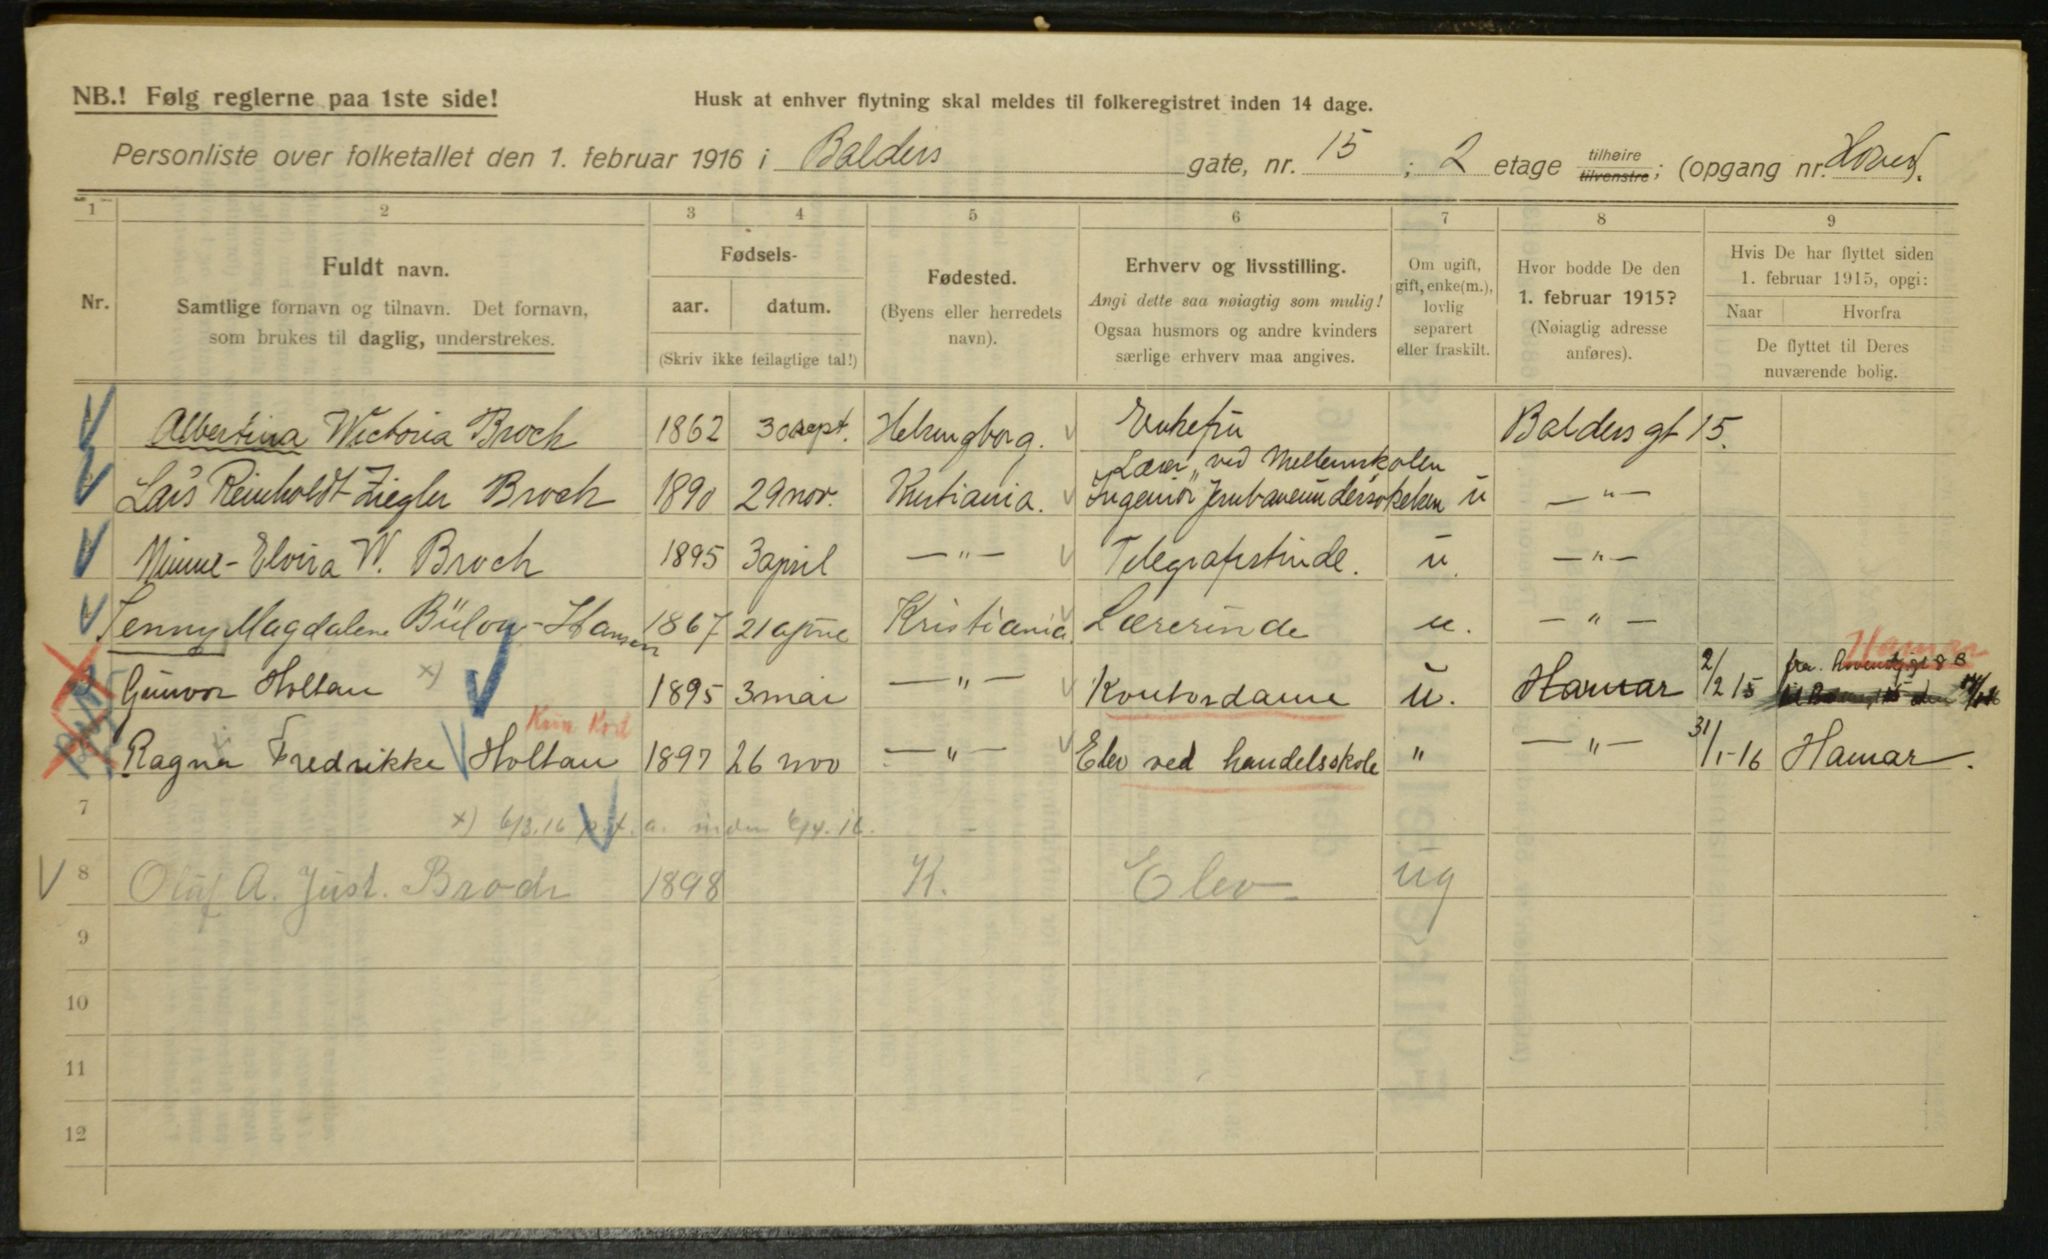 NB.! Følg reglerne paa 1ste side!
Husk at enhver flytning skal meldes til folkeregistret inden 14 dage.
Personliste over folketallet den 1. februar 1916 i Balders gate, nr. 15 ; 2 etage tilhøire tilvenstre; (opgang nr. Hoved).
1 2 3 4 5 6 7 8 9
Nr. Fuldt navn. Samtlige fornavn og tilnavn. Det fornavn, som brukes til daglig, understrekes.
Fødsels- aar. datum. (Skriv ikke feilagtige tal!)
Fødested. (Byens eller herredets navn).
Erhverv og livsstilling. Angi dette saa nøiagtig som mulig! Ogsaa husmors og andre kvinders særlige erhverv maa angives.
Om ugift, gift, enke(m.), lovlig separert eller fraskilt.
Hvor bodde De den 1. februar 1915? (Nøiagtig adresse anføres).
Hvis De har flyttet siden 1. februar 1915, opgi: Naar Hvorfra De flyttet til Deres nuværende bolig.
Albertina Victoria Broch 1862 30 sept. Helsingborg. Enkefru Balders gt 15.
Lærer ved Mellemskolen
Lars Reinholdt Ziegler Broch 1890 29 nov. Kristiania. Ingeniør Jernbaneundersøkelsen u — " —
Minne-Elvira W. Broch 1895 3 april — " — Telegrafistinde. u. — " —
Jenny Magdalene Bülow-Hansen 1867 21 april Kristiania Lærerinde u. — " —
Hamar
Gunvor Holtan x) 1895 3 mai — " — Kontordame u. Hamar 2/2 15 fra
Ragna Fredrikke Holtan 1897 26 nov — " — Elev ved handelsskole " — " — 31/1-16 Hamar.
7 x) 6/3.16 p.t. a. inden 6/4.16.
8 Olaf A. Just. Broch 1898 K. Elev ug
9
10
11
12